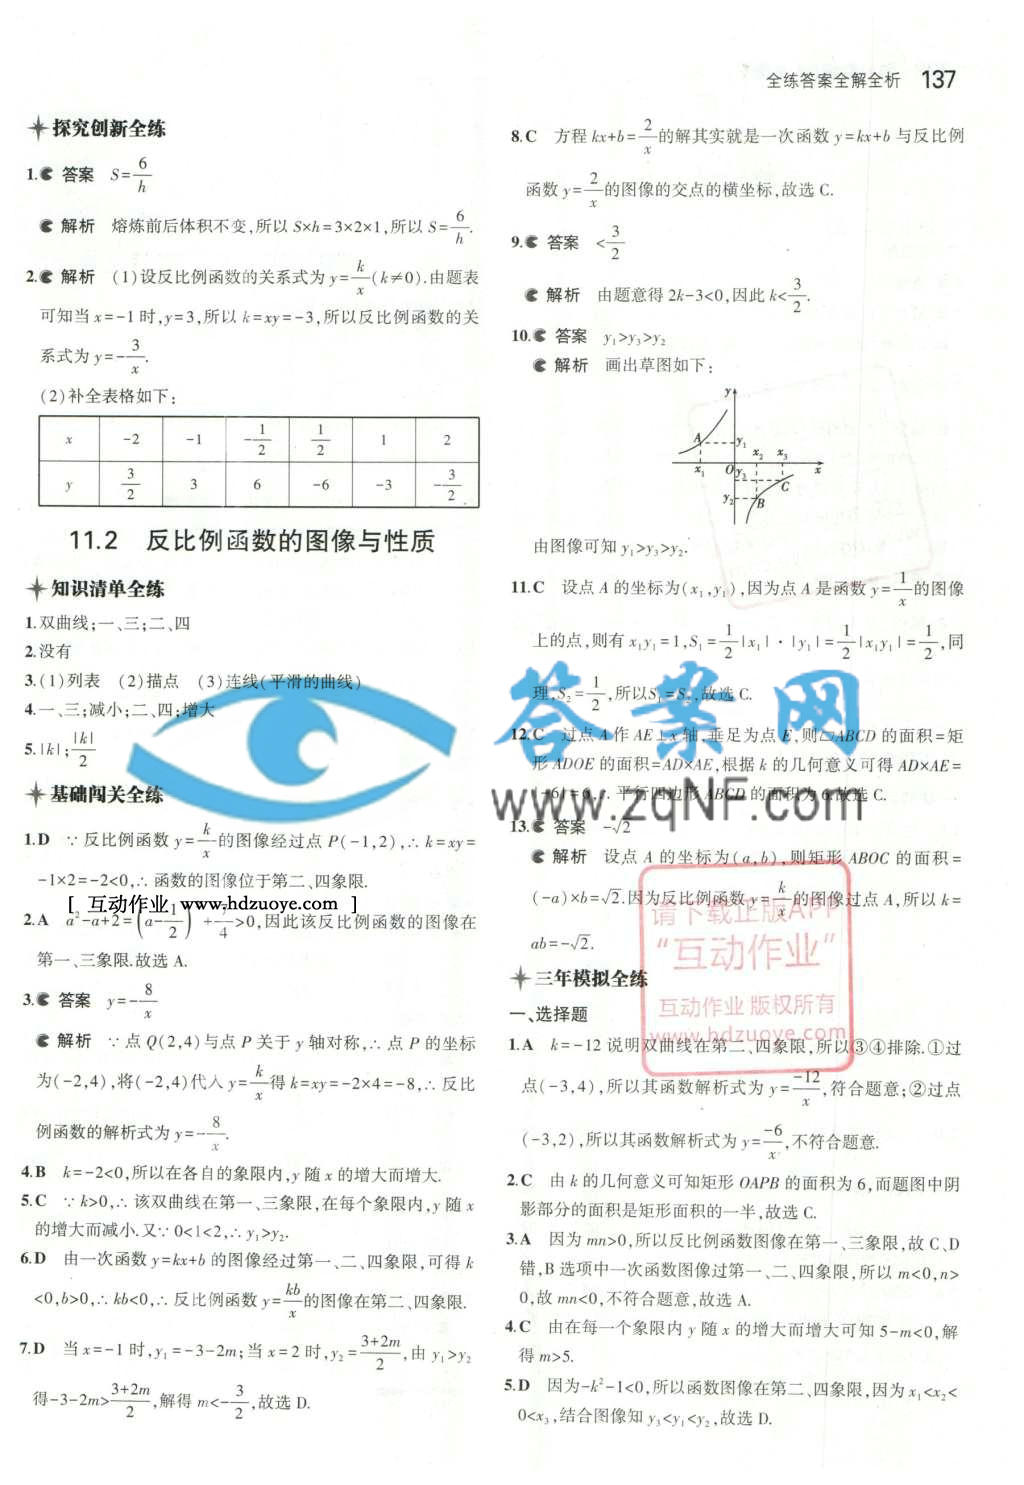 全练答案全解全析 137
探究创新全练
1. 答案 S=6/h
解析 熔炼前后体积不变,所以 S×h=3×2×1,所以 S=6/h.
2. 解析 (1)设反比例函数的关系式为 y=k/x(k≠0).由题表
可知当 x=-1 时,y=3,所以 k=xy=-3,所以反比例函数的关
系式为 y=-3/x.
(2)补全表格如下:
x -2 -1 -1/2 1/2 1 2
y 3/2 3 6 -6 -3 -3/2
11.2 反比例函数的图像与性质
知识清单全练
1.双曲线;一、三;二、四
2.没有
3.(1)列表 (2)描点 (3)连线(平滑的曲线)
4.一、三;减小;二、四;增大
5.|k|;|k|/2
基础闯关全练
1.D ∵反比例函数 y=k/x的图像经过点 P(-1,2),∴k=xy=
-1×2=-2<0,∴函数的图像位于第二、四象限.
[ 互动作业 www.hdzuoye.com ]
2.A a²-a+2=(a-1/2)²+7/4>0,因此该反比例函数的图像在
第一、三象限.故选 A.
3. 答案 y=-8/x
解析 ∵点 Q(2,4)与点 P 关于 y 轴对称,∴点 P 的坐标
为(-2,4),将(-2,4)代入 y=k/x得 k=xy=-2×4=-8,∴反比
例函数的解析式为 y=-8/x.
4.B k=-2<0,所以在各自的象限内,y 随 x 的增大而增大.
5.C ∵k>0,∴该双曲线在第一、三象限,在每个象限内,y 随 x
的增大而减小.又∵0<1<2,∴y₁>y₂.
6.D 由一次函数 y=kx+b 的图像经过第一、二、四象限,可得 k
<0,b>0,∴kb<0,∴反比例函数 y=kb/x的图像在第二、四象限.
7.D 当 x=-1 时,y₁=-3-2m;当 x=2 时,y₂=(3+2m)/2,由 y₁>y₂
得-3-2m>(3+2m)/2,解得 m<-3/2,故选 D.
8.C 方程 kx+b=2/x的解其实就是一次函数 y=kx+b 与反比例
函数 y=2/x的图像的交点的横坐标,故选 C.
9. 答案 <3/2
解析 由题意得 2k-3<0,因此 k<3/2.
10. 答案 y₁>y₃>y₂
解析 画出草图如下:
y
A y₁ x₂ x₃
x₁ O y₃ x
C
y₂ B
由图像可知 y₁>y₃>y₂.
11.C 设点 A 的坐标为(x₁,y₁),因为点 A 是函数 y=1/x的图像
上的点,则有 x₁y₁=1,S₁=1/2|x₁|·|y₁|=1/2|x₁y₁|=1/2,同
理,S₂=1/2,所以S₁=S₂,故选 C.
答案网
12.C 过点 A 作 AE⊥x 轴,垂足为点 E,则▱ABCD 的面积=矩
形 ADOE 的面积=AD×AE,根据 k 的几何意义可得 AD×AE=
|-6|=6,∴平行四边形 ABCD 的面积为 6.故选 C.
www.zqNF.com
13. 答案 -√2
解析 设点 A 的坐标为(a,b),则矩形 ABOC 的面积=
(-a)×b=√2.因为反比例函数 y=k/x的图像过点 A,所以 k=
ab=-√2.
请下载正版APP
“互动作业”
互动作业 版权所有
www.hdzuoye.com
三年模拟全练
一、选择题
1.A k=-12 说明双曲线在第二、四象限,所以③④排除.①过
点(-3,4),所以其函数解析式为 y=-12/x,符合题意;②过点
(-3,2),所以其函数解析式为 y=-6/x,不符合题意.
2.C 由 k 的几何意义可知矩形 OAPB 的面积为 6,而题图中阴
影部分的面积是矩形面积的一半,故选 C.
3.A 因为 mn>0,所以反比例函数图像在第一、三象限,故 C、D
错,B 选项中一次函数图像过第一、二、四象限,所以 m<0,n>
0,故 mn<0,不符合题意,故选 A.
4.C 由在每一个象限内 y 随 x 的增大而增大可知 5-m<0,解
得 m>5.
5.D 因为-k²-1<0,所以函数图像在第二、四象限,因为 x₁<x₂<
0<x₃,结合图像知 y₃<y₁<y₂,故选 D.